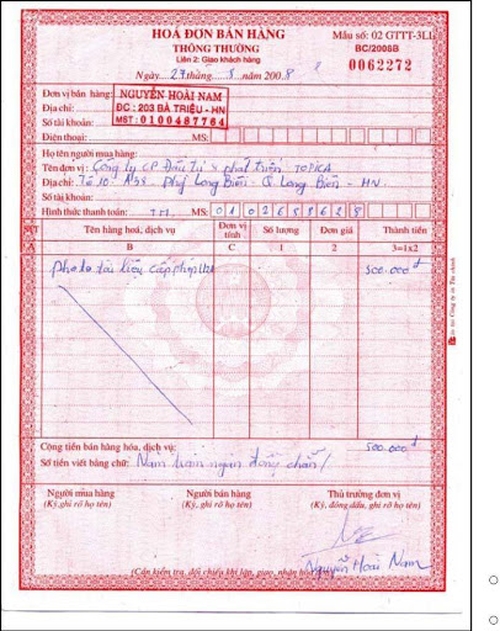 HOÁ ĐƠN BÁN HÀNG
THÔNG THƯỜNG
Liên 2: Giao khách hàng
Mẫu số: 02 GTTT-3LL
BC/2008B
0062272
Ngày...27.tháng...năm 2008
Đơn vị bán hàng: NGUYỄN HOÀI NAM
Địa chỉ: ĐC : 203 BÀ TRIỆU - HN
Số tài khoản: MST: 0100487764
Điện thoại: MS:
Họ tên người mua hàng:
Tên đơn vị: Công ty CP Đầu tư & phát triển TOPICA
Địa chỉ: Tổ 10 A38 Phg Long Biên - Q Long Biên - HN
Số tài khoản:
Hình thức thanh toán: TM MS: 01 02658628
STT Tên hàng hoá, dịch vụ Đơn vị tính Số lượng Đơn giá Thành tiền
A B C 1 2 3=1x2
photo tài liệu cấp phép 500.000đ
Cộng tiền bán hàng hóa, dịch vụ: 500.000đ
Số tiền viết bằng chữ: Năm trăm ngàn đồng chẵn/
Người mua hàng Người bán hàng Thủ trưởng đơn vị
(Ký, ghi rõ họ tên) (Ký, ghi rõ họ tên) (Ký, đóng dấu, ghi rõ họ tên)
Nguyễn Hoài Nam
(Cần kiểm tra, đối chiếu khi lập, giao, nhận hóa